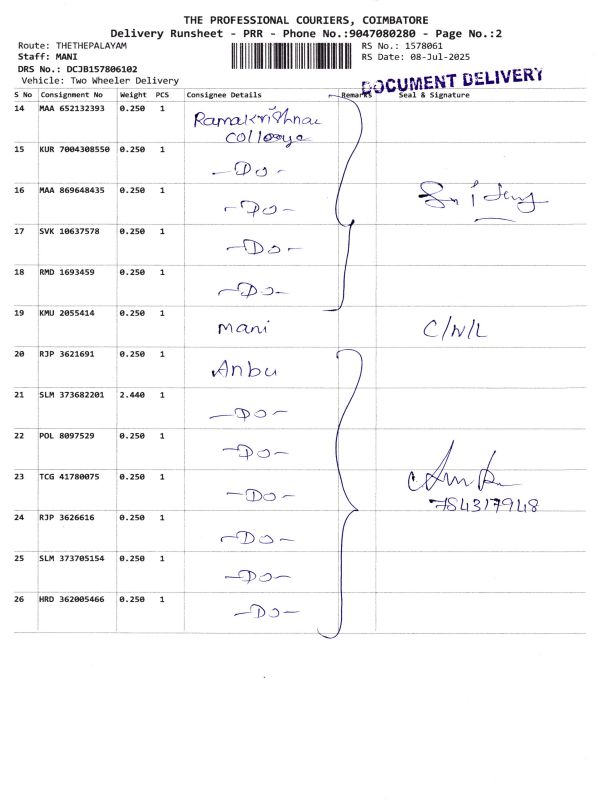 THE PROFESSIONAL COURIERS, COIMBATORE
Delivery Runsheet - PRR - Phone No.:9047080280 - Page No.:2
Route: THETHEPALAYAM
RS No.: 1578061
Staff: MANI
RS Date: 08-Jul-2025
DRS No.: DCJB157806102
Vehicle: Two Wheeler Delivery
DOCUMENT DELIVERY
S No Consignment No Weight PCS Consignee Details Remarks Seal & Signature
14 MAA 652132393 0.250 1 Ramakrishnac
collooge
15 KUR 7004308550 0.250 1
-Do-
16 MAA 869648435 0.250 1
-Do-
17 SVK 10637578 0.250 1
-Do-
18 RMD 1693459 0.250 1
-Do-
19 KMU 2055414 0.250 1
mani C/N/L
20 RJP 3621691 0.250 1
Anbu
21 SLM 373682201 2.440 1
-Do-
22 POL 8097529 0.250 1
-Do-
23 TCG 41780075 0.250 1
-Do-
784317948
24 RJP 3626616 0.250 1
-Do-
25 SLM 373705154 0.250 1
-Do-
26 HRD 362005466 0.250 1
-Do-